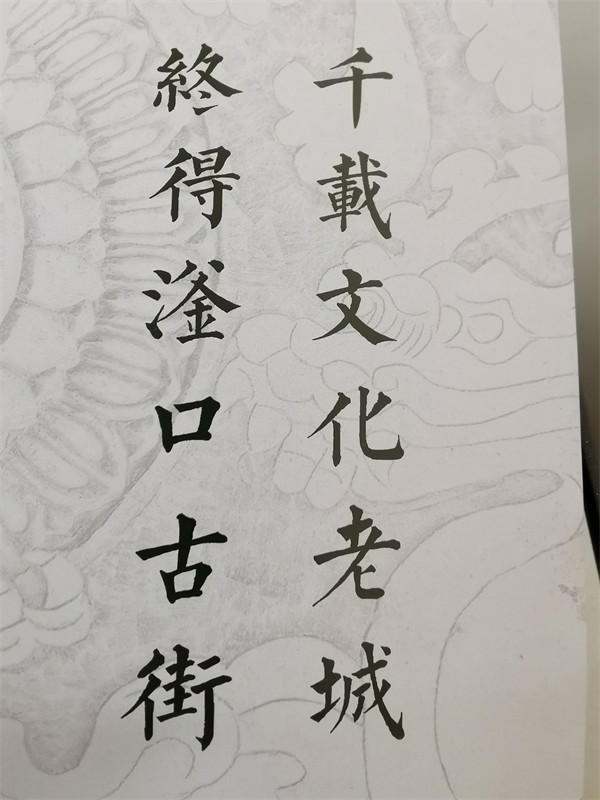 千載文化老城
終得滏口古街